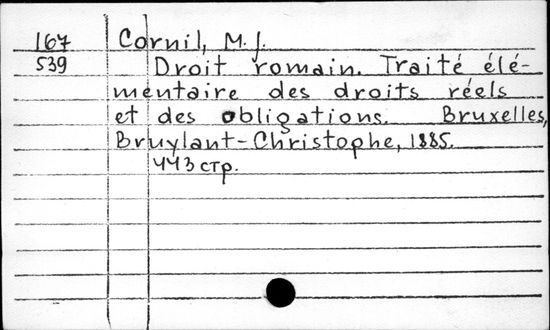 167 Cornil, M. J.
539 Droit romain. Traité élé-
mentaire des droits réels
et des obligations. Bruxelles,
Bruylant-Christophe, 1885.
443 стр.